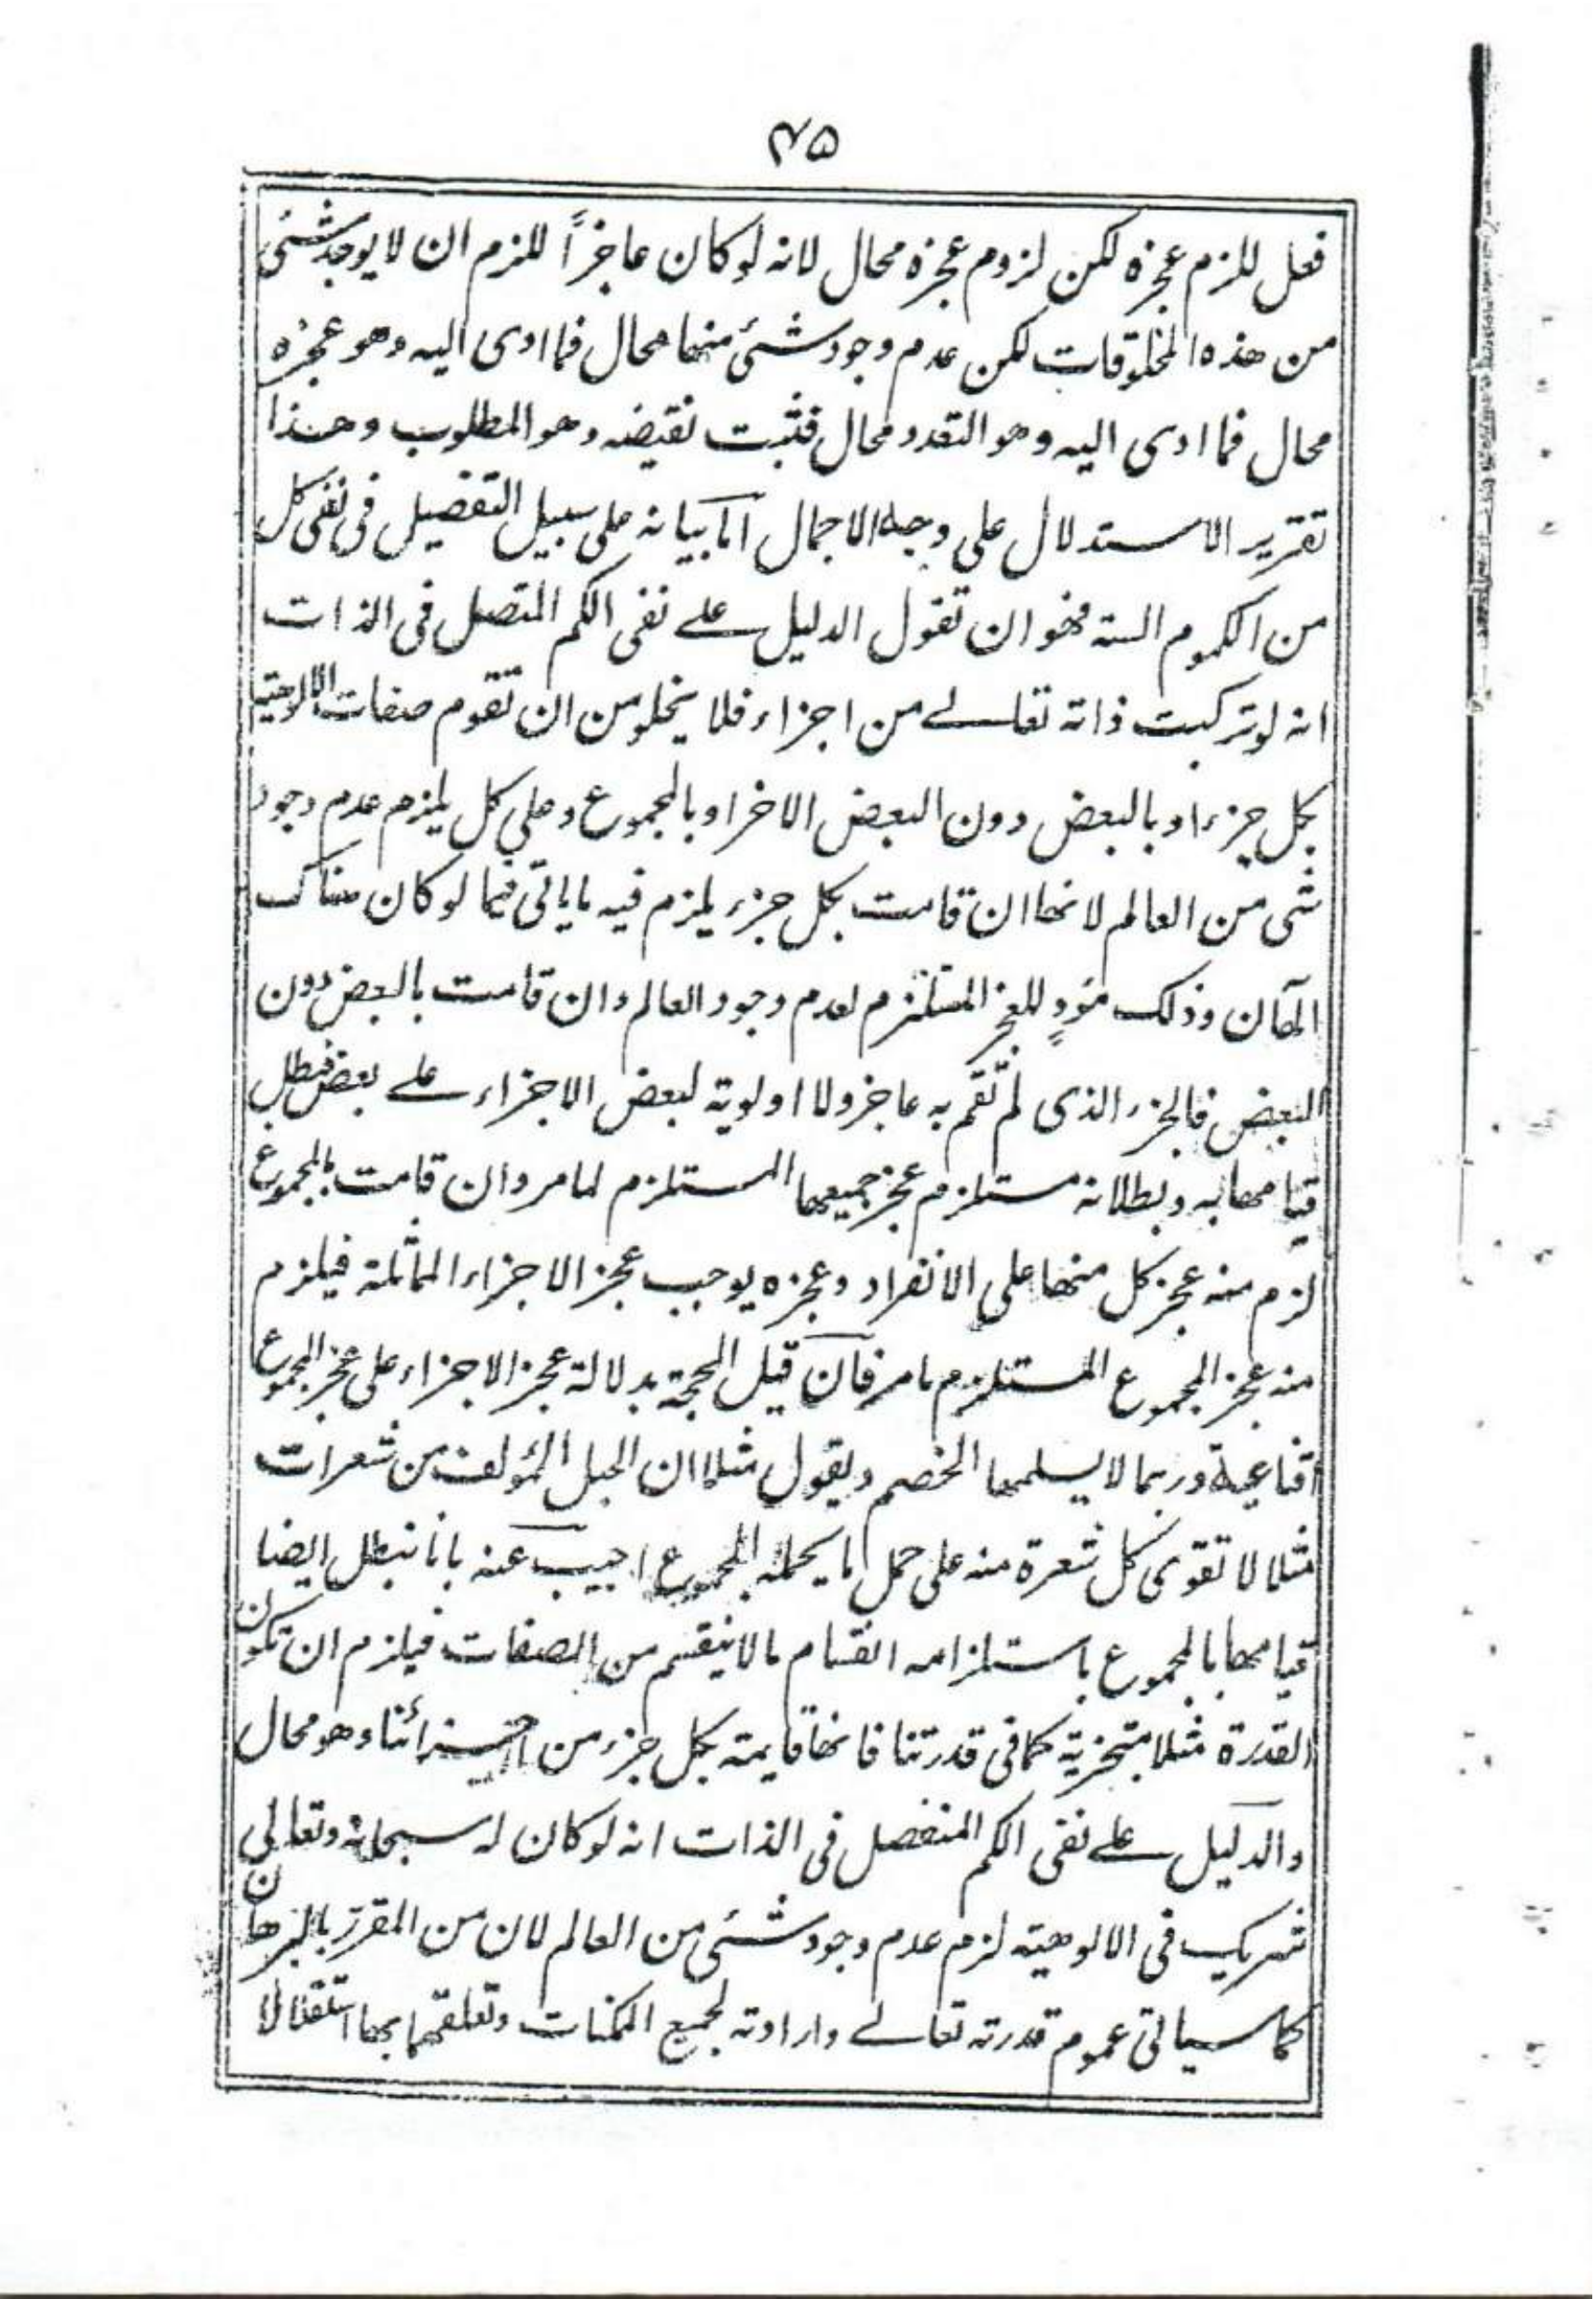 ۴۵
فعل للزم عجزه لكن لزوم عجزه محال لانه لو كان عاجزاً للزم ان لا يوجد شئى
من هذه المخلوقات لكن عدم وجود شئى منها محال فما ادى اليه وهو عجزه
محال فما ادى اليه وهو التعدد محال فثبت نقيضه وهو المطلوب وهذا
تقرير الاستدلال على وجه الاجمال امّا بيانه على سبيل التفصيل فى نفى كل
من الكموم الستة فهو ان تقول الدليل على نفى الكم المتصل فى الذات
انه لو تركبت ذاته تعالے من اجزاء فلا يخلو من ان تقوم صفات الالوهية
بكل جزء او بالبعض دون البعض الاخر او بالمجموع وعلى كل يلزم عدم وجود
شى من العالم لانها ان قامت بكل جزء يلزم فيه ما ياتى فيما لو كان هناك
الٰهان وذلك مؤدٍ للعجز المستلزم لعدم وجود العالم وان قامت بالبعض دون
البعض فالجزء الذى لم تقم به عاجز ولا اولوية لبعض الاجزاء علے بعض فبطل
قيامها به وبطلانه مستلزم عجز جميعها المستلزم لما مر وان قامت بالمجموع
لزم منه عجز كل منها على الانفراد وعجزه يوجب عجز الاجزاء المماثلة فيلزم
منه عجز المجموع المستلزم ما مر فان قيل الحجة بدلالة عجز الاجزاء على عجز المجموع
اقناعية وربما لا يسلمها الخصم ويقول مثلا ان الحبل المؤلف من شعرات
مثلا لا تقوى كل شعرة منه على حمل ما يحمله المجموع اجيب عنه بانا نبطل ايضا
قيامها بالمجموع باستلزامه انقسام ما لا ينقسم من الصفات فيلزم ان تكون
القدرة مثلا متجزية كما فى قدرتنا فانها قايمة بكل جزء من اجزائنا وهو محال
والدليل علے نفى الكم المنفصل فى الذات انه لو كان له سبحانه وتعالى
شريك فى الالوهية لزم عدم وجود شئى من العالم لان من المقرر بالبرهان
كما سياتى عموم قدرته تعالے وارادته لجميع الممكنات وتعلقهما بها استقلالا